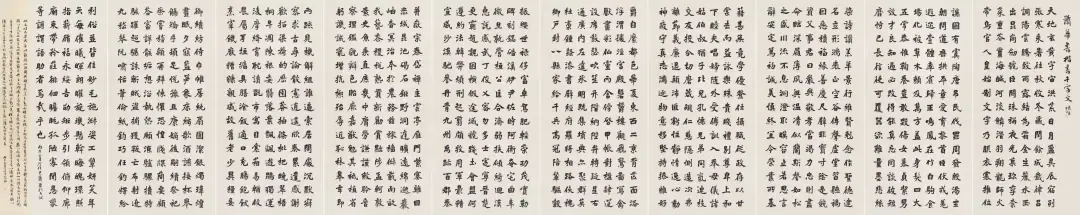 天地玄黃宇宙洪荒日月盈昃辰宿列
張寒來暑往秋收冬藏閏餘成歲律呂
調陽雲騰致雨露結為霜金生麗水玉
出崑岡劍號巨闕珠稱夜光果珍李柰
菜重芥薑海鹹河淡鱗潛羽翔龍師火
帝鳥官人皇始制文字乃服衣裳推位
讓國有虞陶唐弔民伐罪周發殷湯坐
朝問道垂拱平章愛育黎首臣伏戎羌
遐邇壹體率賓歸王鳴鳳在竹白駒食
場化被草木賴及萬方蓋此身髮四大
五常恭惟鞠養豈敢毀傷女慕貞絜男
效才良知過必改得能莫忘罔談彼短
靡恃己長信使可覆器欲難量墨悲絲
染詩讚羔羊景行維賢克念作聖德建
名立形端表正空谷傳聲虛堂習聽禍
因惡積福緣善慶尺璧非寶寸陰是競
資父事君曰嚴與敬孝當竭力忠則盡
命臨深履薄夙興溫凊似蘭斯馨如松
之盛川流不息淵澄取映容止若思言
辭安定篤初誠美慎終宜令榮業所基
籍甚無竟學優登仕攝職從政存以甘
棠去而益詠樂殊貴賤禮別尊卑上和
下睦夫唱婦隨外受傅訓入奉母儀諸
姑伯叔猶子比兒孔懷兄弟同氣連枝
交友投分切磨箴規仁慈隱惻造次弗
離節義廉退顛沛匪虧性靜情逸心動
神疲守真志滿逐物意移堅持雅操好
爵自縻都邑華夏東西二京背邙面洛
浮渭據涇宮殿盤鬱樓觀飛驚圖寫禽
獸畫彩仙靈丙舍傍啟甲帳對楹肆筵
設席鼓瑟吹笙升階納陛弁轉疑星右
通廣內左達承明既集墳典亦聚群英
杜稿鍾隸漆書壁經府羅將相路俠槐
卿戶封八縣家給千兵高冠陪輦驅轂
振纓世祿侈富車駕肥輕策功茂實勒
碑刻銘磻溪伊尹佐時阿衡奄宅曲阜
微旦孰營桓公匡合濟弱扶傾綺迴漢
惠說感武丁俊乂密勿多士寔寧晉楚
更霸趙魏困橫假途滅虢踐土會盟何
遵約法韓弊煩刑起翦頗牧用軍最精
宣威沙漠馳譽丹青九州禹跡百郡秦
并嶽宗泰岱禪主云亭雁門紫塞雞田
赤城昆池碣石鉅野洞庭曠遠綿邈巖
岫杳冥治本於農務茲稼穡俶載南畝
我藝黍稷稅熟貢新勸賞黜陟孟軻敦
素史魚秉直庶幾中庸勞謙謹敕聆音
察理鑑貌辨色貽厥嘉猷勉其祗植省
躬譏誡寵增抗極殆辱近恥林皋幸即
兩疏見機解組誰逼索居閒處沉默寂
寥求古尋論散慮逍遙欣奏累遣慼謝
歡招渠荷的歷園莽抽條枇杷晚翠梧
桐早凋陳根委翳落葉飄颻遊鵾獨運
凌摩絳霄耽讀翫市寓目囊箱易輶攸
畏屬耳垣牆具膳餐飯適口充腸飽飫
烹宰飢厭糟糠親戚故舊老少異糧妾
御績紡侍巾帷房紈扇圓潔銀燭煒煌
晝眠夕寐藍筍象床絃歌酒讌接杯舉
觴矯手頓足悅豫且康嫡後嗣續祭祀
烝嘗稽顙再拜悚懼恐惶牋牒簡要顧
答審詳骸垢想浴執熱願涼驢騾犢特
駭躍超驤誅斬賊盜捕獲叛亡布射遼
丸嵇琴阮嘯恬筆倫紙鈞巧任釣釋紛
利俗並皆佳妙毛施淑姿工顰妍笑年
矢每催曦暉朗曜璇璣懸斡晦魄環照
指薪修祜永綏吉劭矩步引領俯仰廊
廟束帶矜莊徘徊瞻眺孤陋寡聞愚蒙
等誚謂語助者焉哉乎也